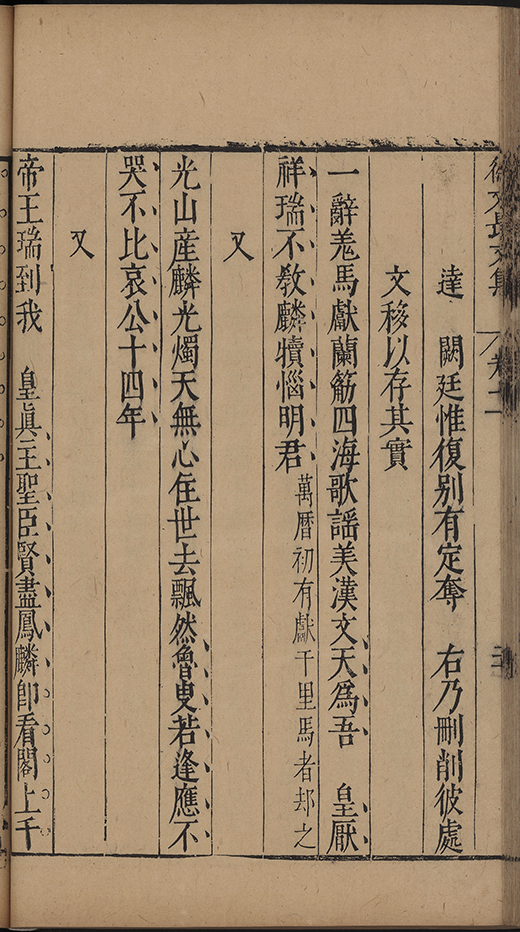 徐文長文集 卷十二
達 闕廷惟復別有定奪 右乃刪削彼處
文移以存其實
一辭羗馬獻蘭筋四海歌謡美漢文天爲吾 皇厭
祥瑞不敎麟犢惱明君萬曆初有獻千里馬者却之
又
光山産麟光燭天無心住世去飄然魯叟若逢應不
哭不比哀公十四年
又
帝王瑞到我 皇眞王聖臣賢盡鳳麟卽看閣上千